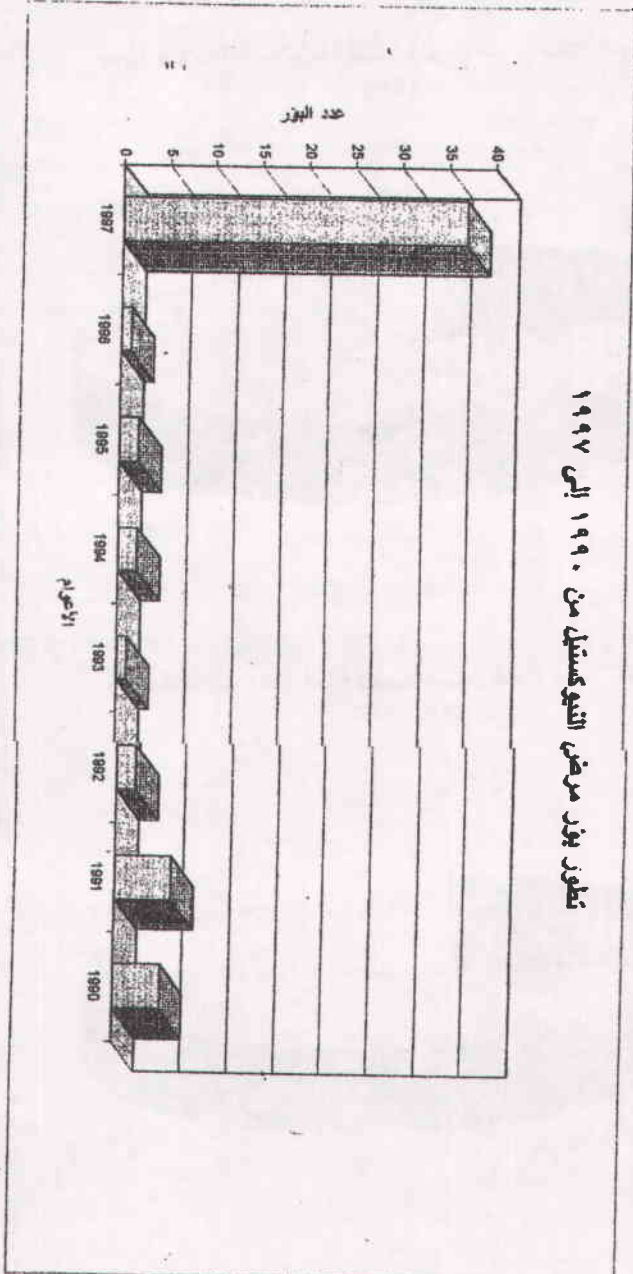 تطور بؤر مرض النيوكستيل من ١٩٩٠ إلى ١٩٩٧
عدد البؤر
40
35
30
25
20
15
10
5
0
1997
1996
1995
1994
1993
1992
1991
1990
الأعوام